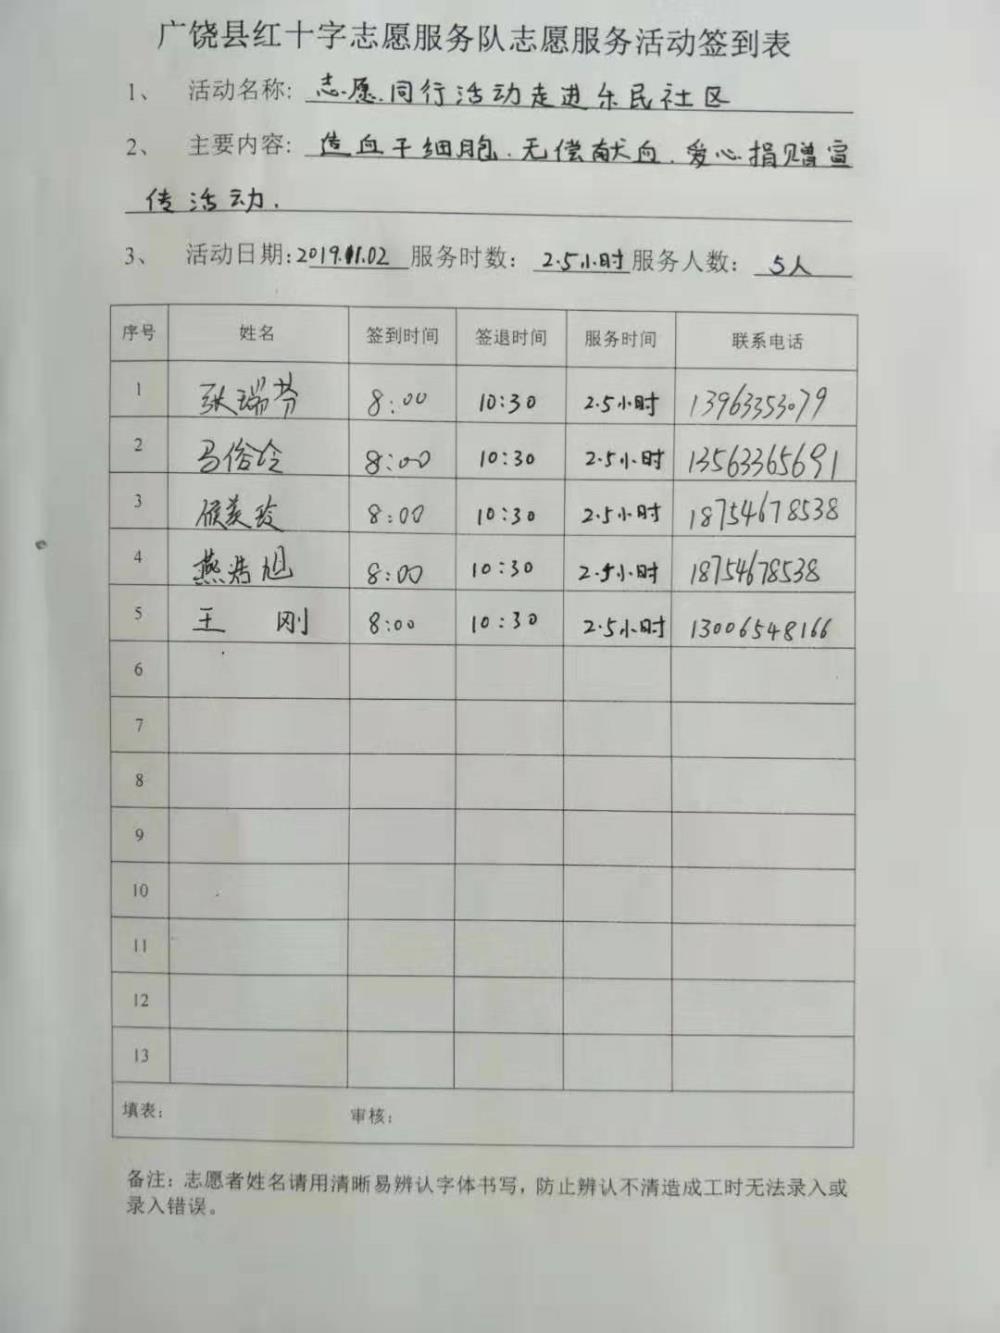 广饶县红十字志愿服务队志愿服务活动签到表
1、 活动名称: 志愿同行活动走进乐民社区
2、 主要内容: 造血干细胞.无偿献血.爱心捐赠宣
传活动.
3、 活动日期:2019.11.02 服务时数: 2.5小时 服务人数: 5人
序号 姓名 签到时间 签退时间 服务时间 联系电话
1 张瑞芬 8:00 10:30 2.5小时 13963353079
2 马俊玲 8:00 10:30 2.5小时 13563365691
3 侯美玲 8:00 10:30 2.5小时 18754678538
4 燕浩旭 8:00 10:30 2.5小时 18754678538
5 王 刚 8:00 10:30 2.5小时 13006548166
6
7
8
9
10
11
12
13
填表: 审核:
备注:志愿者姓名请用清晰易辨认字体书写,防止辨认不清造成工时无法录入或
录入错误。